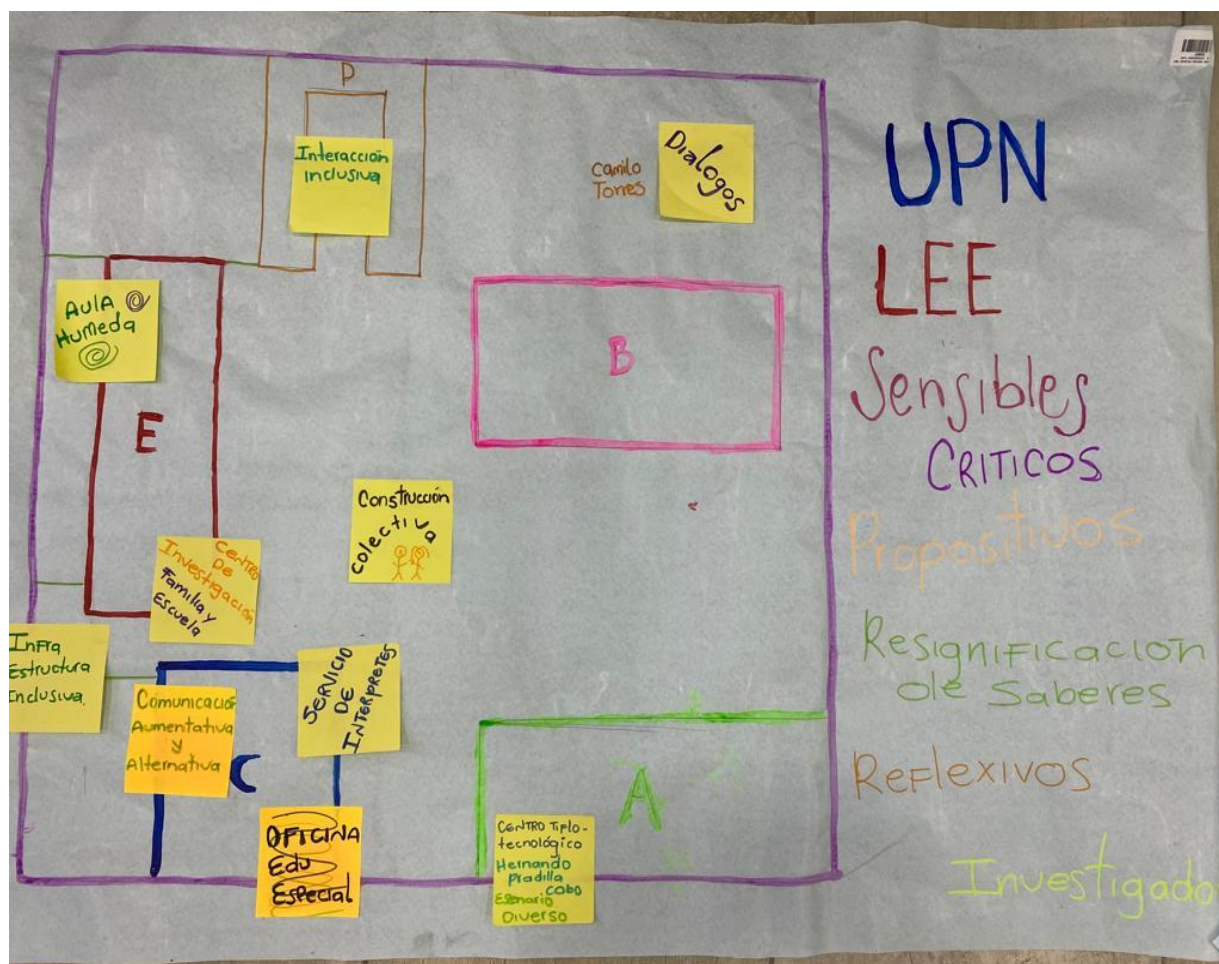 P
Interacción
inclusiva
Camilo
Torres
Dialogos
AULA
Humeda
E
B
Construcción
colectiva
CENTRO
DE
Investigación
Familia y
Escuela
Infra
Estructura
Inclusiva.
Comunicació
Aumentativa
y
Alternativa
C
SERVICIO
DE
INTERPRETES
OFICINA
Edu
Especial
A
CENTRO Tiflo-
tecnológico
Hernando
pradilla
cobo
Esenario
Diverso
UPN
LEE
Sensibles
CRITICOS
Propositivos
Resignificacion
de Saberes
Reflexivos
Investigado